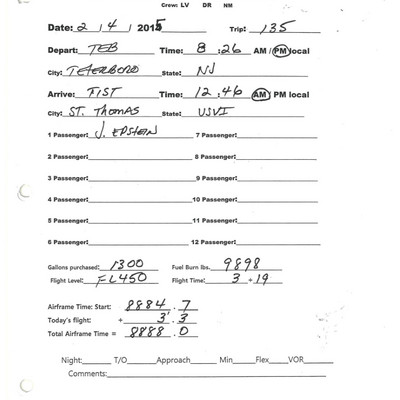 Crew: LV DR NM
Date: 2 / 4 / 2015 Trip: 135
Depart: TEB Time: 8 :26 AM / PM local
City: TETERBORO State: NJ
Arrive: TIST Time: 12 :46 AM / PM local
City: ST. THOMAS State: USVI
1 Passenger: J. EPSTEIN 7 Passenger:
2 Passenger: 8 Passenger:
3 Passenger: 9 Passenger:
4 Passenger: 10 Passenger:
5 Passenger: 11 Passenger:
6 Passenger: 12 Passenger:
Gallons purchased: 1300 Fuel Burn lbs. 9898
Flight Level: FL450 Flight Time: 3 + 19
Airframe Time: Start: 8884 . 7
Today's flight: + 3 . 3
Total Airframe Time = 8888 . 0
Night: T/O Approach Min Flex VOR
Comments: